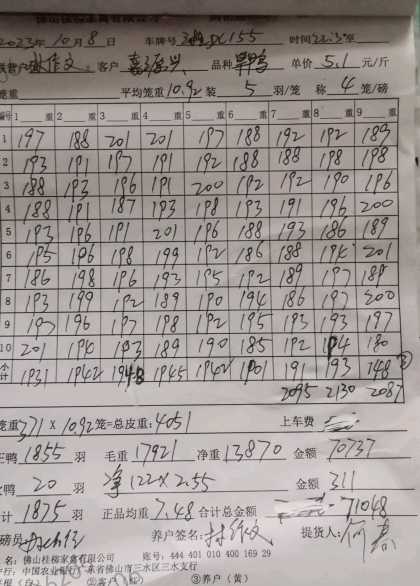 佛山桂柳家禽有限公司
2023年 10月 8日 车牌号 155 时间22:30
客户 品种 单价 5.1 元/斤
笼重 平均笼重 10.92 装 5 羽/笼 称 4 笼/磅
编号 1 重 2 重 3 重 4 重 5 重 6 重 7 重 8 重 9 重
1 197 188 201 201 197 188 192 192 189
2 193 191 197 191 192 188 188 198 198
3 188 193 196 191 200 192 192 190 196
4 188 191 187 193 198 193 191 196 200
5 193 196 191 201 196 188 193 186 189
6 195 196 198 199 192 186 188 194 201
7 186 198 196 193 195 192 189 197 188
8 193 199 192 189 190 194 186 197 200
9 197 196 197 198 192 195 193 193 197
10 201 194 193 189 190 185 192 194 180
合计 1931 1942 1948 1945 1942 1901 191 193 148
2095 2130 2087
笼重371 X 1092笼=总皮重:4051 上车费
鸭 1855 羽 毛重 17921 净重 13870 金额 70737
鸭 20 羽 净122×2.55 金额 311
计 1875 羽 正品均重 7.48 合计总金额 71048
磅员: 养户签名: 提货人:
名:佛山桂柳家禽有限公司 账号:444 401 010 400 169 29
行:中国农业银行广东省佛山市三水区三水支行
②客户 ③养户(黄)